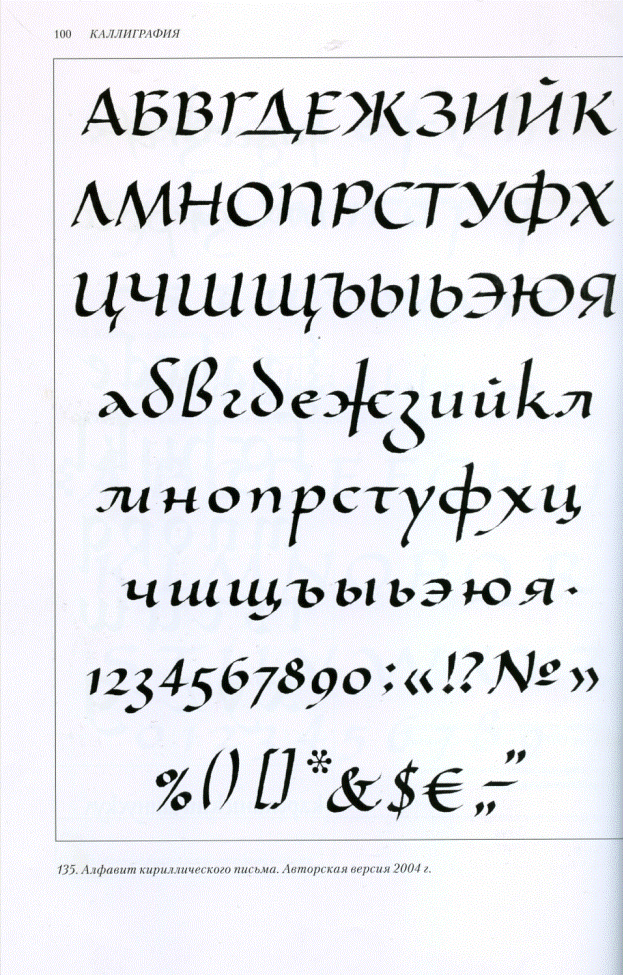 100 КАЛЛИГРАФИЯ
АБВГДЕЖЗИЙК
ЛМНОПРСТУФХ
ЦЧШЩЪЫЬЭЮЯ
абвгдежзийкл
мнопрстуфхц
чшщъыьэюя.
1234567890:«!?№»
%()[]*&$€„–”
135. Алфавит кириллического письма. Авторская версия 2004 г.